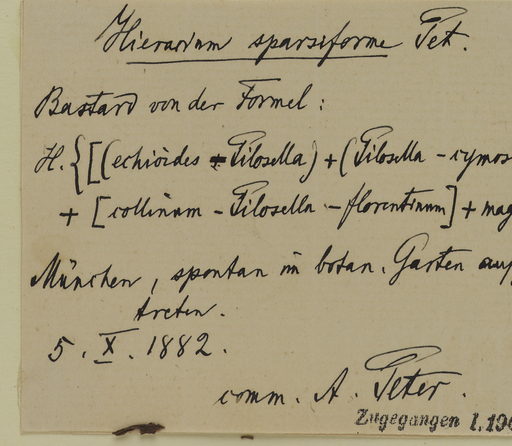 Hieracium sparsiforme Pet.
Bastard von der Formel:
H. {[(echioides + Pilosella) + (Pilosella - cymos
+ [collinum - Pilosella - florentinum] + mag
München, spontan im botan. Garten auf
treten.
5. X. 1882.
comm. A. Peter.
Zugegangen I. 190